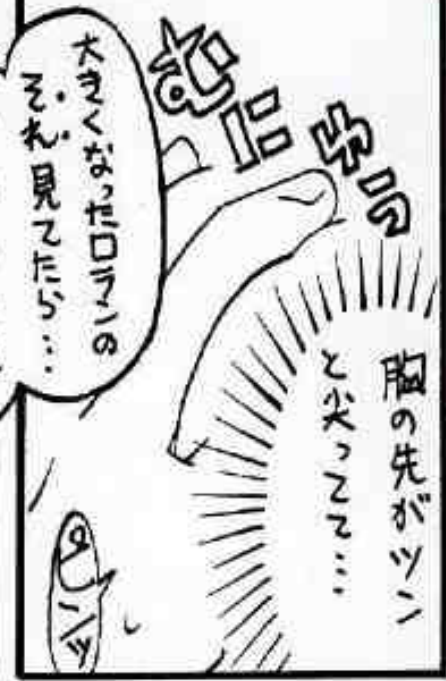 胸の先がツン
と尖ってて…
むにゅっ
大きくなったロランの
それ見てたら…
ピンッ